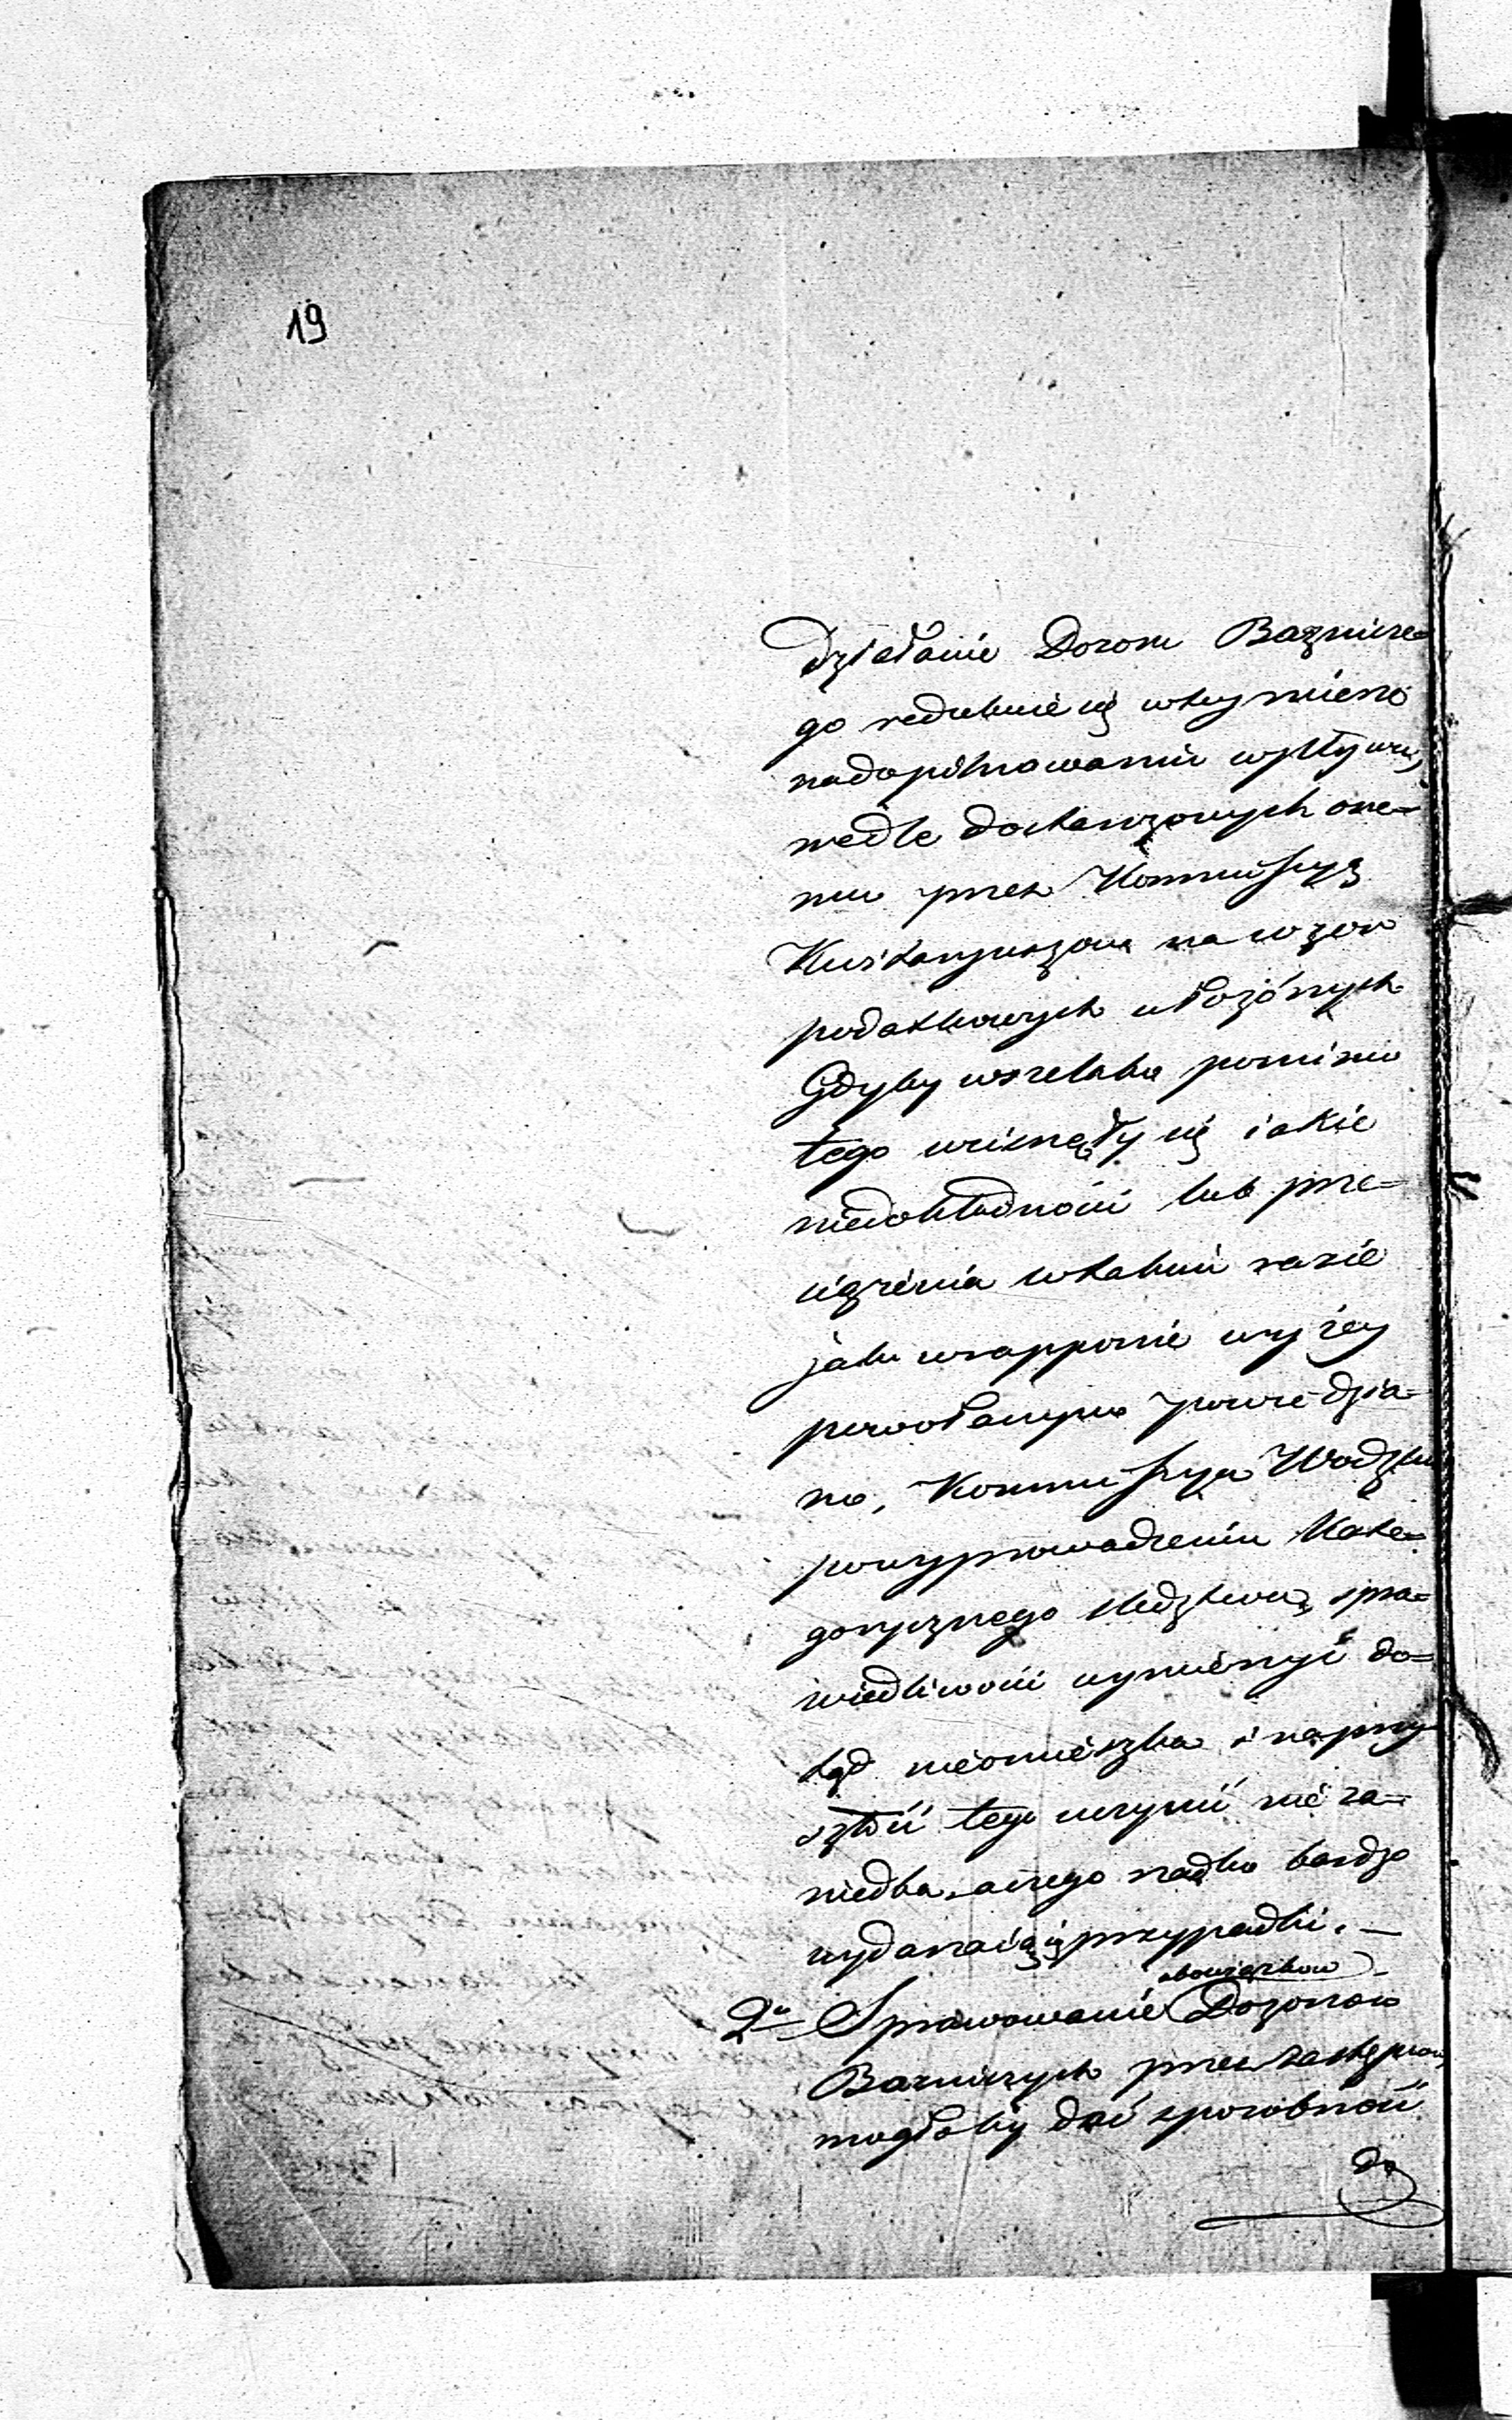 19
Działanie Dozoru Baznicze=
go redukuie się w tey mierze
na dopilnowaniu wpływu,
wedle dostarczonych one=
mu przez Kommissyą
Kwitaryuszow na wzor
podatkowych ułożonych
Gdyby wszelako pomimo
tego wcisnęły się iakie
niedokładności lub prze=
ciążenia w takim razie
jak w rapporcie wyżey
powołanym powiedzia=
no, Kommissya Wodzka
po wyprowadzeniu Kate=
gorycznego śledztwa, spra=
wiedliwość wymierzyć do=
tąd nieomieszka i na przy
szłość tego uczynić nie za=
niedba, acz rzadko bardzo
wydarzaią się przypadki. —
obowiązkow
2o Sprawowanie Dozorow
Bazniczych przez zastępcow
mogłoby dać sposobność
do